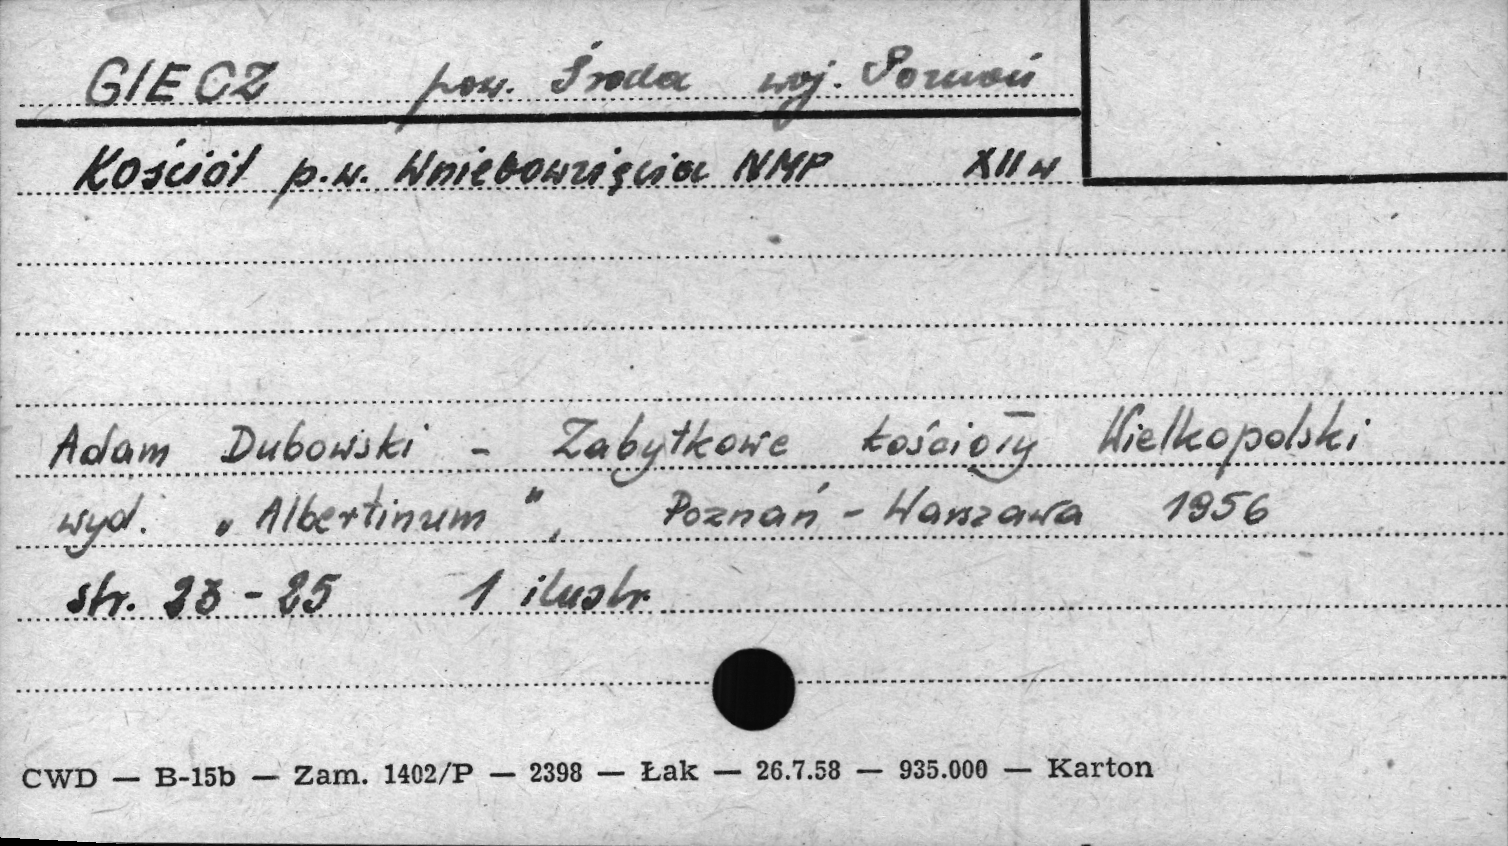 GIECZ pow. Środa woj. Poznań
Kościół p.w. Wniebowzięcia NMP XII w
Adam Dubowski - Zabytkowe kościoły Wielkopolski
wyd. „Albertinum", Poznań - Warszawa 1956
str. 23 - 25 1 ilustr.
CWD — B-15b — Zam. 1402/P — 2398 — Łak — 26.7.58 — 935.000 — Karton